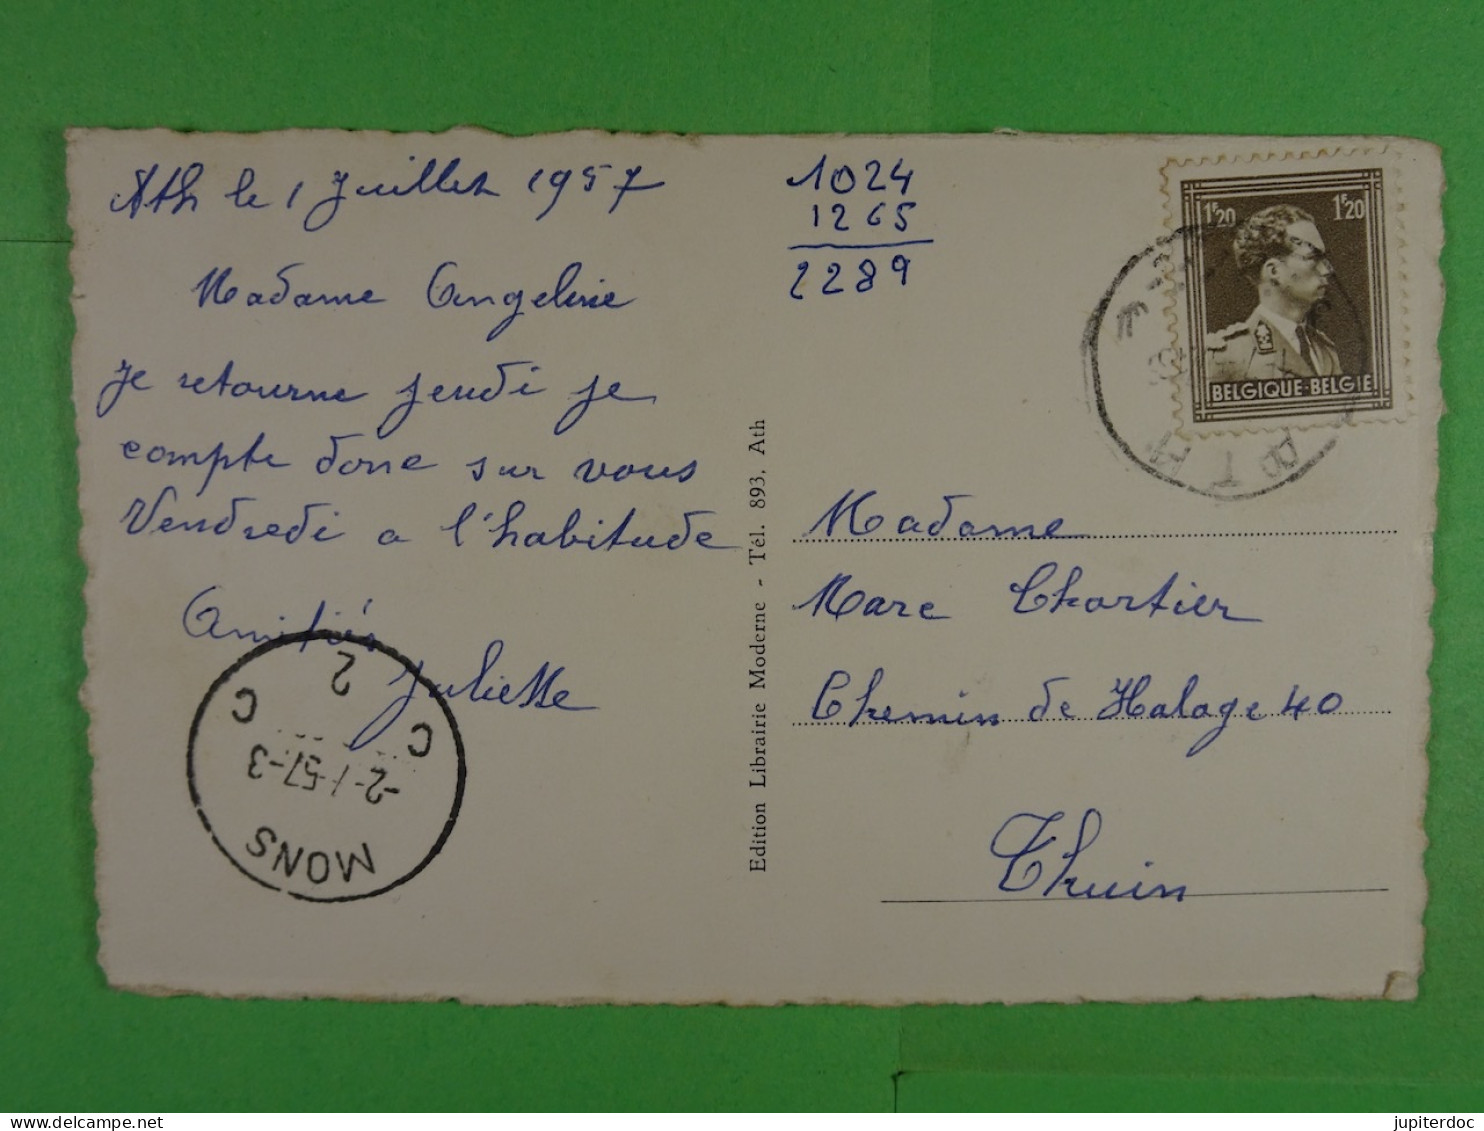 Ath le 1 Juillet 1957
Madame Angeline
Je retourne jeudi je
compte donc sur vous
Vendredi a l'habitude
Amitiés
Juliette
2
C C
-2-7-57-3
MONS
Edition Librairie Moderne - Tél. 893. Ath
1024
1265
2289
1F20 1F20
BELGIQUE-BELGIE
ATH
Madame
Marc Chartier
Chemin de Halage 40
Thuin
jupiterdoc